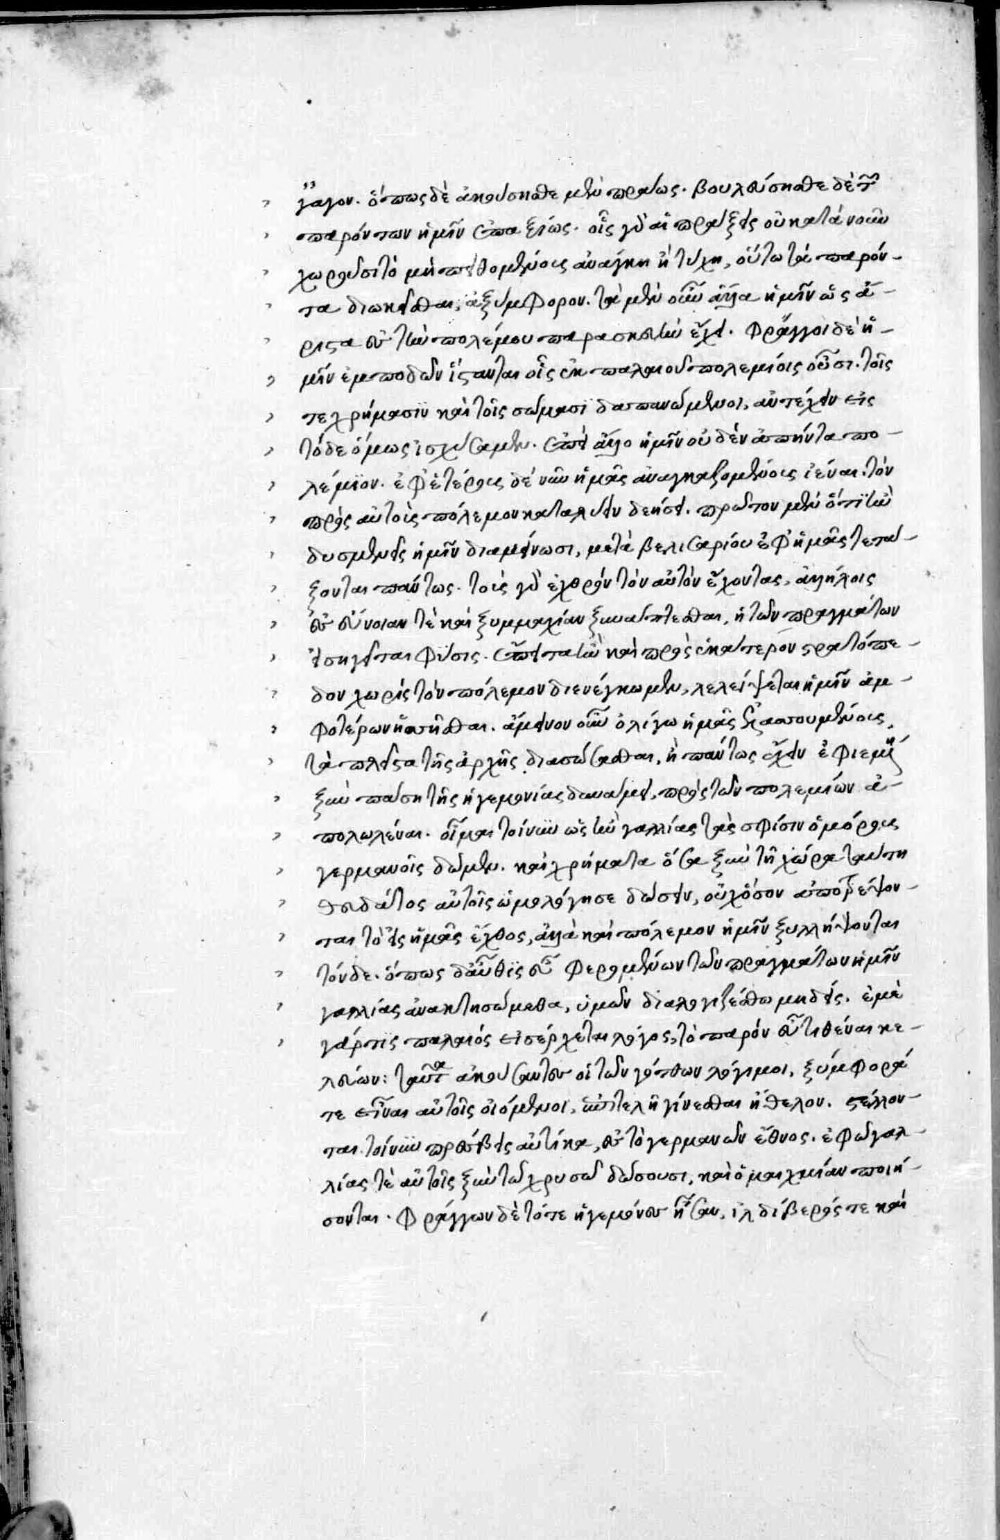 ήγαγον. ὅπως δὲ ἀκούσησθε μὲν πράως. βουλεύσησθε δὲ τῶν
παρόντων ἡμῖν ἐπαξίως. οἷς γὰρ αἱ πράξεις οὐ κατὰ νοῦν
χωροῦσι τὸ μὴ πειθομένοις ἀνάγκη ἢ τύχῃ, οὕτω τὰ παρόν-
τα διωκεῖσθαι, ἀξύμφορον. τὰ μὲν οὖν ἄλλα ἡμῖν ὡς ἄ-
ριστα ἐς τὸν πολέμου παρασκευὴν ἔχει. φράγγοι δὲ ἡ-
μῖν ἐμποδὼν ἵστανται οἷς ἐκ παλαιοῦ πολεμίοις οὖσι. τοῖς
τε χρήμασιν καὶ τοῖς σώμασι δαπανώμενοι, ἀντέχειν εἰς
τόδε ὅμως ἰσχύσαμεν. ἐπεὶ ἄλλο ἡμῖν οὐδὲν ἀπήντα πο-
λέμιον. ἐφ' ἑτέροις δὲ νῦν ἡμᾶς ἀναγκαζομένοις ἰέναι. τὸν
πρὸς αὐτοὺς πόλεμον καταλύειν δεήσει. πρῶτον μὲν ὅτι ἢν
δυσμενεῖς ἡμῖν διαμείνωσι, μετὰ βελισαρίου ἐφ' ἡμᾶς τετά-
ξονται πάντως. τοὺς γὰρ ἐχθρὸν τὸν αὐτὸν ἔχοντας, ἀλλήλοις
ἐς εὔνοιαν τὲ καὶ ξυμμαχίαν ξυνάπτεσθαι, ἡ τῶν πραγμάτων
εἰσηγεῖται φύσις. ἔπειτα ἢν καὶ πρὸς ἑκάτερον στρατόπε-
δον χωρὶς τὸν πόλεμον διενέγκωμεν, λελείψεται ἡμῖν ἀμ-
φοτέρων ἡττῆσθαι. ἄμεινον οὖν ὀλίγω ἡμᾶς ἐλασσουμένοις
τὰ πλεῖστα τῆς ἀρχῆς διασώσασθαι, ἢ πάντως ἔχειν ἐφιεμένους
ξὺν πάσῃ τῆς ἡγεμονίας δυνάμει, πρὸς τῶν πολεμίων ἀ-
πολωλέναι. οἶμαι τοίνυν ὡς ἢν γαλλίας τὰς σφίσιν ὁμόρους
γερμανοῖς δῶμεν. καὶ χρήματα ὅσα ξὺν τῇ χώρᾳ ταύτῃ
θευδάτος αὐτοῖς ὡμολόγησε δώσειν, οὐχ ὅσον ἀποτρέψον-
ται τὸ εἰς ἡμᾶς ἔχθος, ἀλλὰ καὶ πόλεμον ἡμῖν ξυλλήψονται
τόνδε. ὅπως δ' αὖθις εὖ φερομένων τῶν πραγμάτων ἡμῖν
γαλλίας ἀνακτησώμεθα, ὑμῶν διαλογιζέσθω μηδείς. ἐμὲ
γάρ τις παλαιὸς εἰσέρχεται λόγος, τὸ παρὸν εὖ τιθέναι κε-
λεύων: ταῦτα ἀκούσαντες οἱ τῶν γότθων λόγιμοι, ξύμφορά
τε εἶναι αὐτοῖς οἰόμενοι, ἐπιτελῆ γίνεσθαι ἤθελον. στέλλον-
ται τοίνυν πρέσβεις αὐτίκα, ἐς τὸ γερμανῶν ἔθνος. ἐφ' ὧ γαλ-
λίας τὲ αὐτοῖς ξὺν τῶ χρυσῶ δώσουσι, καὶ ὁμαιχμίαν ποιή-
σονται. φράγγων δὲ τότε ἡγεμόνες ἦσαν, ἰλδίβερός τε καὶ